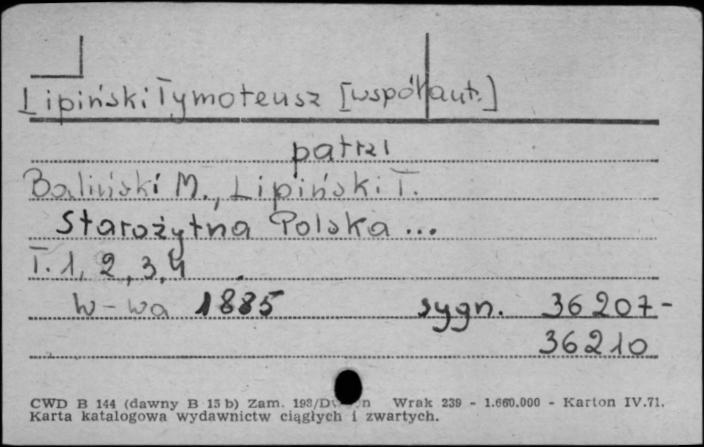 Lipiński Tymoteusz [współaut.]
patrz
Baliński M., Lipiński T.
Starożytna Polska ...
T. 1, 2, 3, 4
W-wa 1885 sygn. 36207-
36210
CWD B 144 (dawny B 15 b) Zam. Wrak 239 - 1.660.000 - Karton IV.71.
Karta katalogowa wydawnictw ciągłych i zwartych.